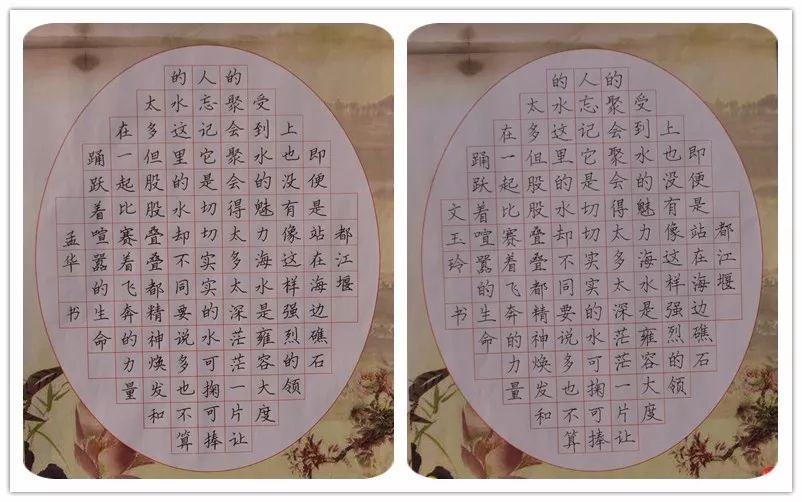 都江堰
即便是站在海边礁石
上也没有像这样强烈的领
受到水的魅力海水是雍容大度
的聚会聚会得太多太深茫茫一片让
人忘记它是切切实实的水可掬可捧
的水这里的水却不同要说多也不算
太多但股股叠叠都精神焕发和
在一起比赛着飞奔的力量
踊跃着喧嚣的生命
孟华 书
都江堰
即便是站在海边礁石
上也没有像这样强烈的领
受到水的魅力海水是雍容大度
的聚会聚会得太多太深茫茫一片让
人忘记它是切切实实的水可掬可捧
的水这里的水却不同要说多也不算
太多但股股叠叠都精神焕发和
在一起比赛着飞奔的力量
踊跃着喧嚣的生命
文玉玲 书